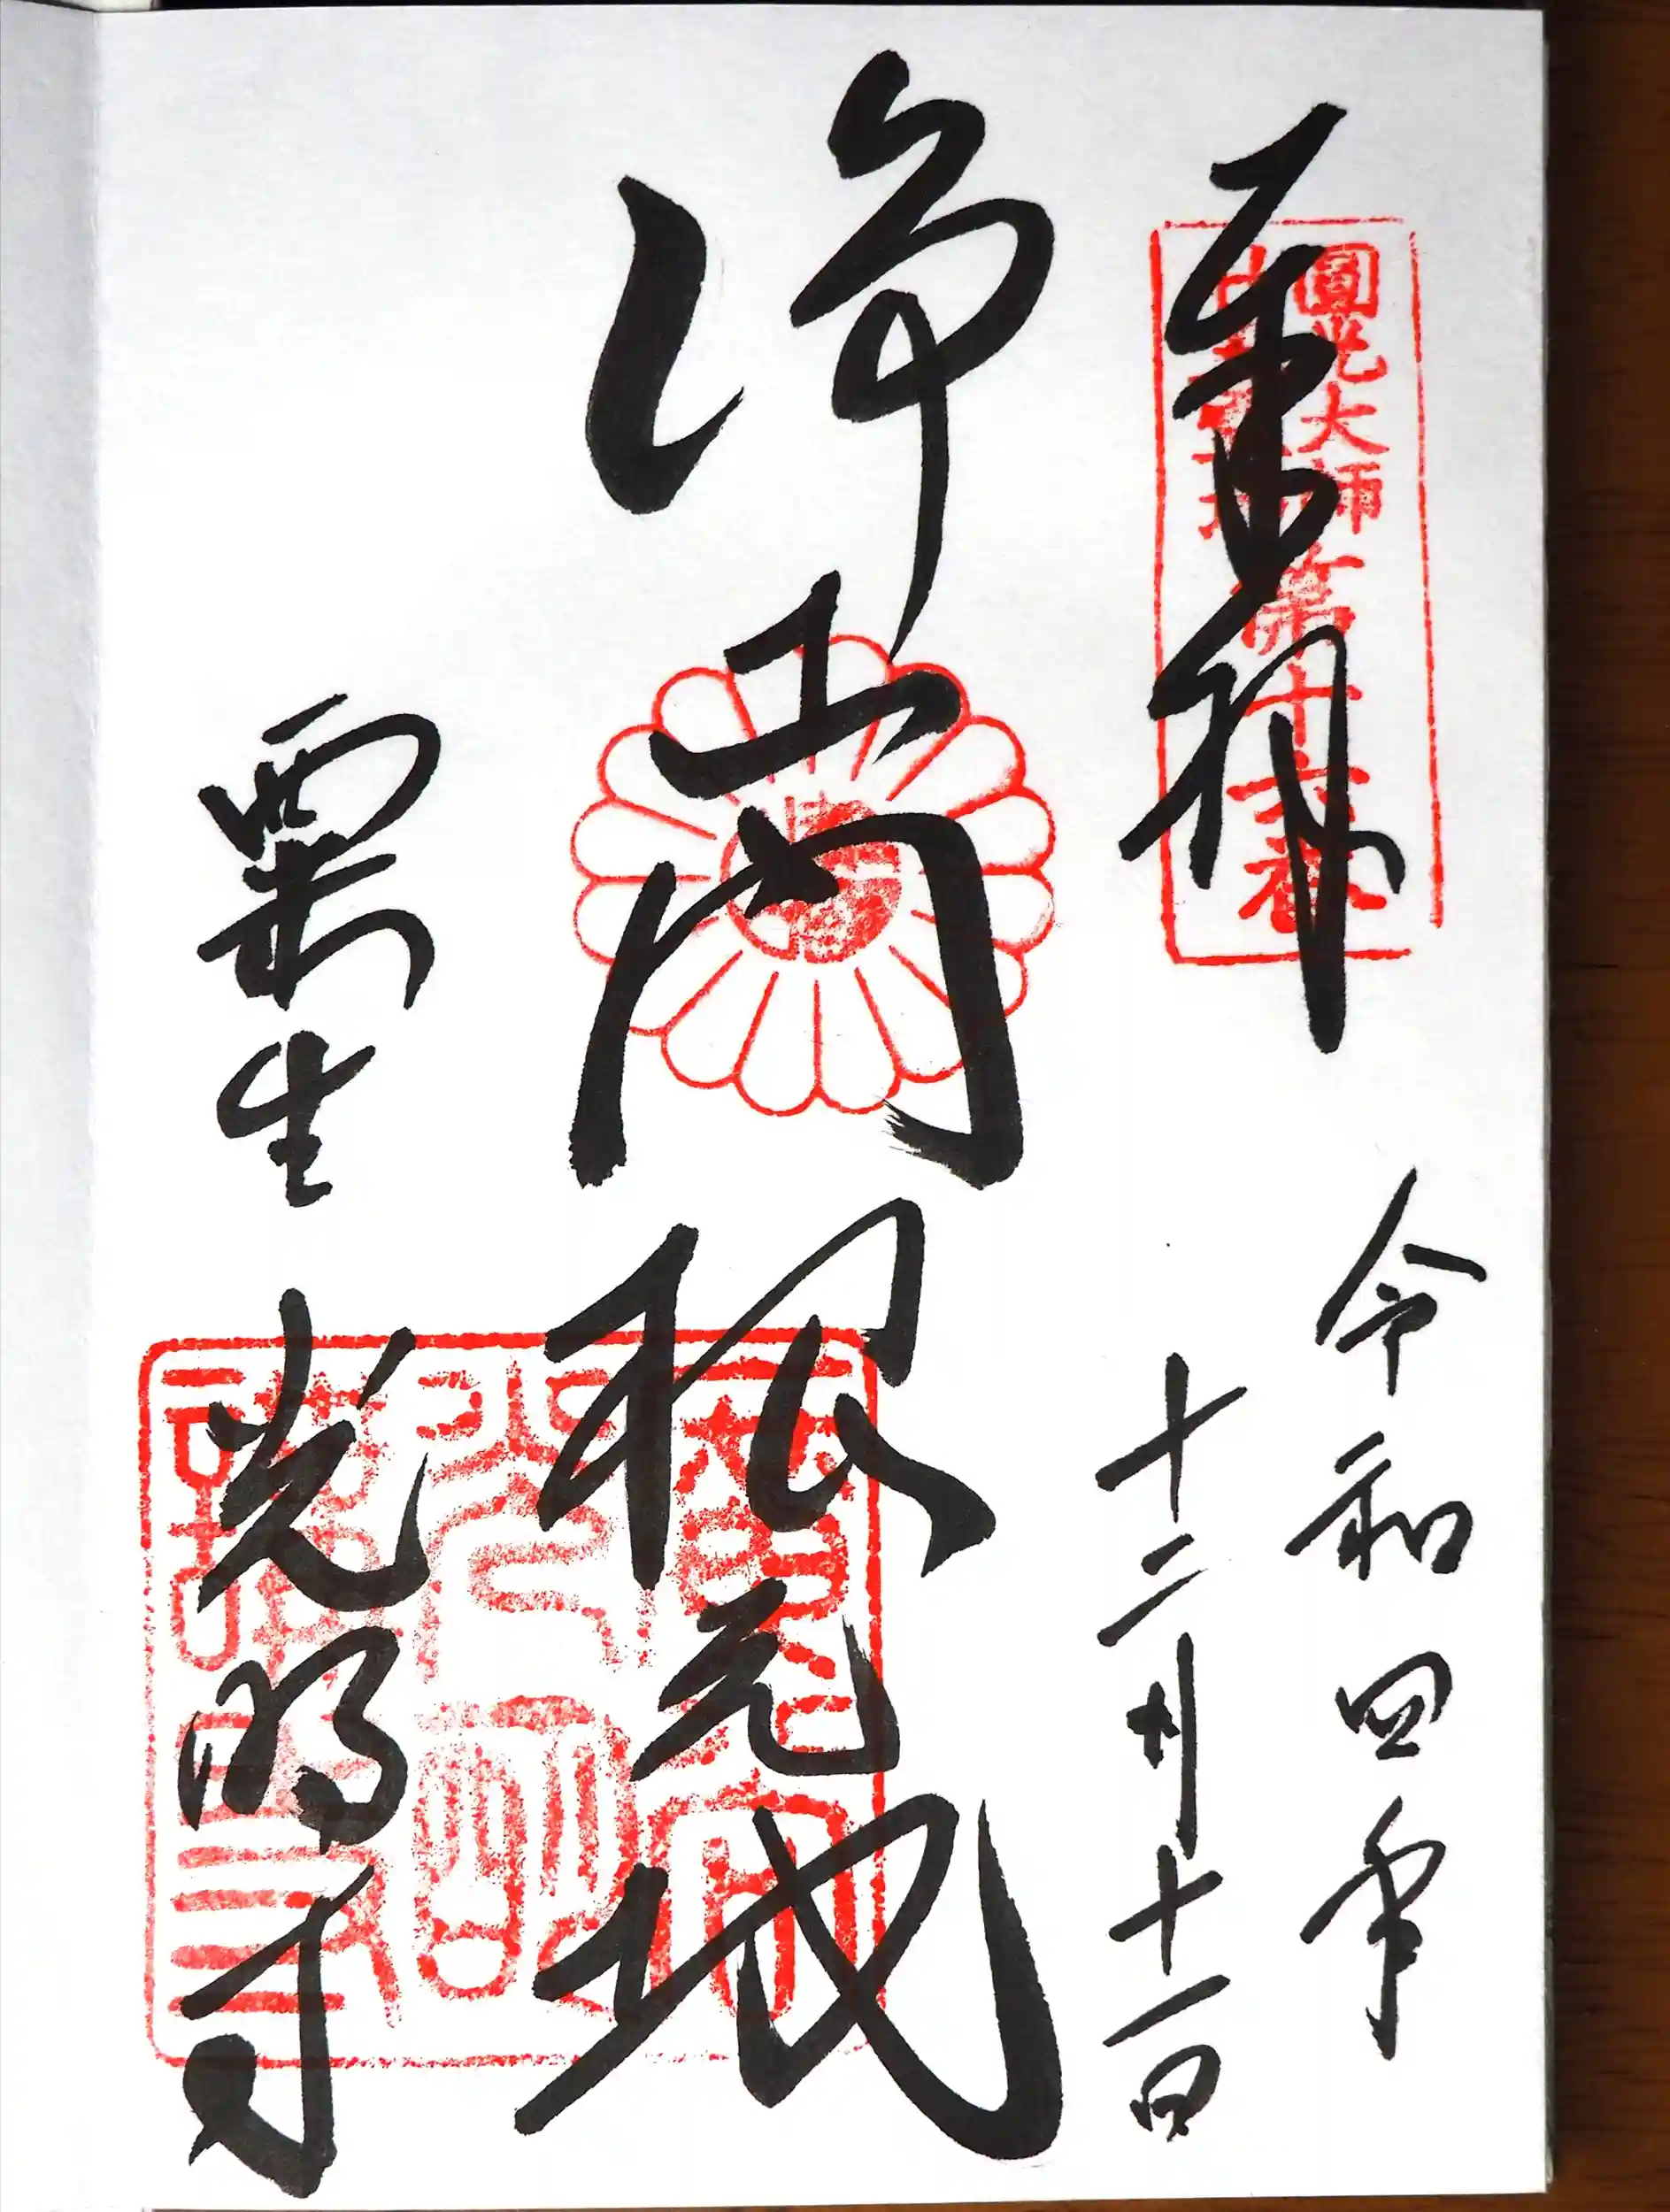 奉拝
圓光大師
第十六番
令和四年
十二月十一日
浄土門根元地
粟生 光明寺